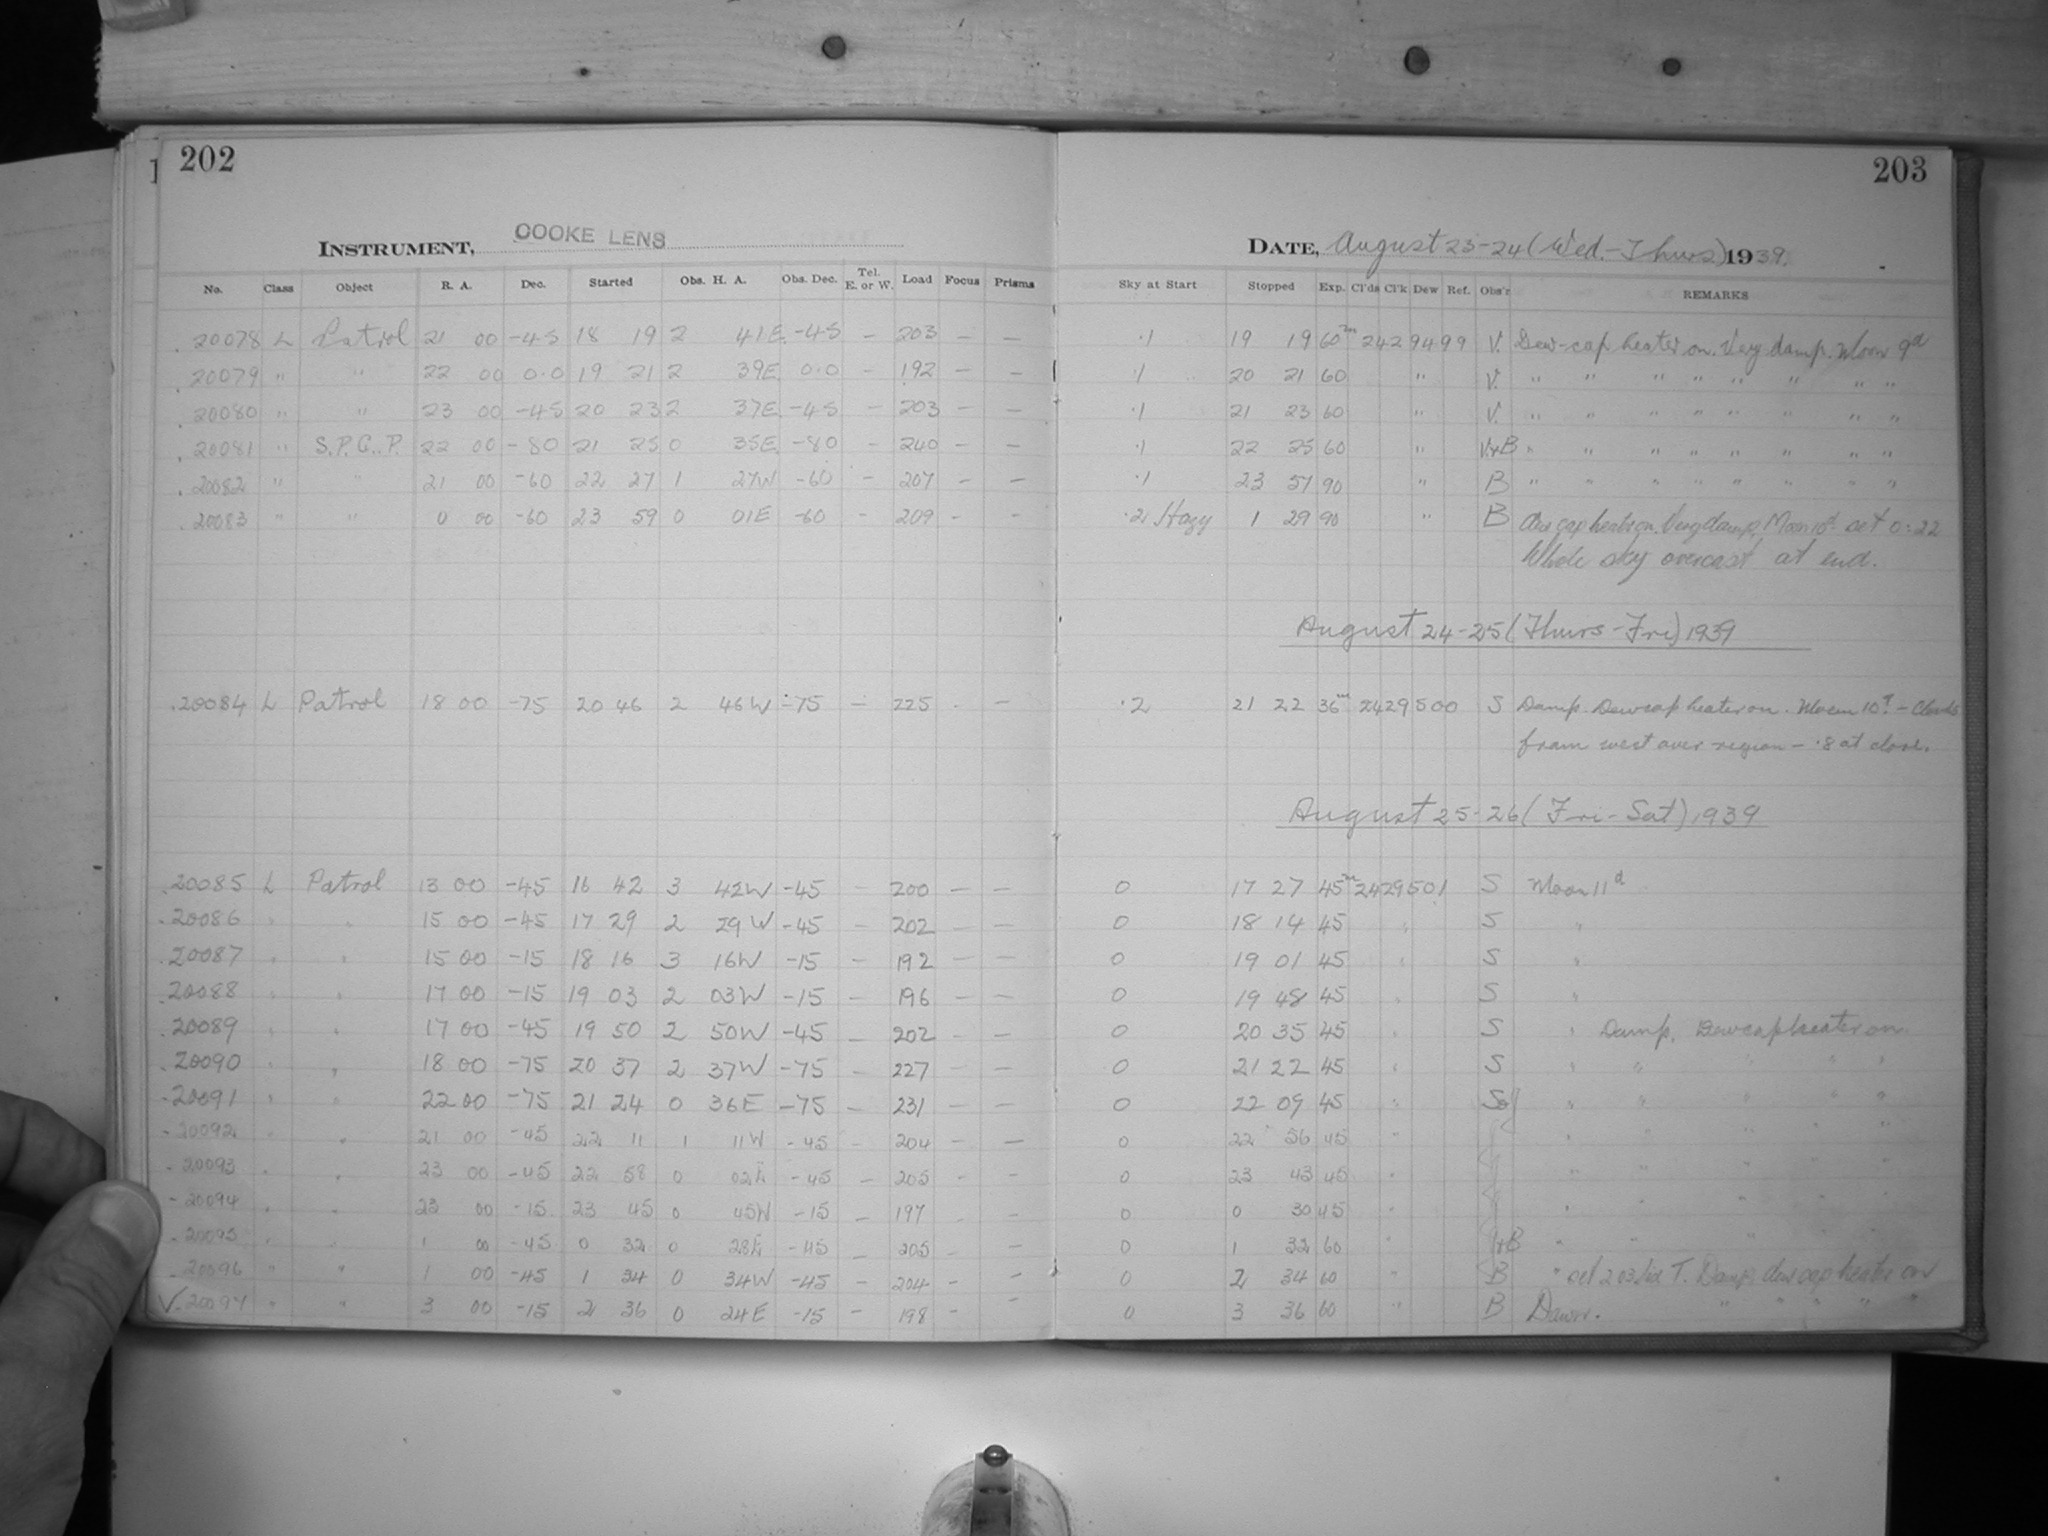 202
203
INSTRUMENT, COOKE LENS
DATE, August 23-24 (Wed.-Thurs) 1939.
No. Class Object R. A. Dec. Started Obs. H. A. Obs. Dec. Tel. E. or W. Load Focus Prisms Sky at Start Stopped Exp. Cl'ds Cl'k Dew Ref. Obs'r REMARKS
20078 L Patrol 21 00 -45 18 19 2 41E -45 - 203 - - .1 19 19 60m 2429499 V. Dew-cap heater on. Very damp. Moon 9d
20079 " " 22 00 0.0 19 21 2 39E 0.0 - 192 - - .1 20 21 60 " V. " " " " " " " "
20080 " " 23 00 -45 20 23 2 37E -45 - 203 - - .1 21 23 60 " V. " " " " " " " "
20081 " S.P.C.P. 22 00 -80 21 25 0 35E -80 - 240 - - .1 22 25 60 " V+B " " " " " " " "
20082 " " 21 00 -60 22 27 1 27W -60 - 207 - - .1 23 57 90 " B " " " " " " " "
20083 " " 0 00 -60 23 59 0 01E -60 - 209 - - .2 Hazy 1 29 90 " B Dew cap heater on. Very damp, Moon 10d set 0:22
Whole sky overcast at end.
August 24-25 (Thurs-Fri) 1939
20084 L Patrol 18 00 -75 20 46 2 46W -75 - 225 - - .2 21 22 36m 2429500 S Damp. Dewcap heater on. Moon 10d - Clouds
from west over region - .8 at close.
August 25-26 (Fri-Sat) 1939
20085 L Patrol 13 00 -45 16 42 3 42W -45 - 200 - - 0 17 27 45m 2429501 S Moon 11d
20086 " " 15 00 -45 17 29 2 29W -45 - 202 - - 0 18 14 45 " S "
20087 " " 15 00 -15 18 16 3 16W -15 - 192 - - 0 19 01 45 " S "
20088 " " 17 00 -15 19 03 2 03W -15 - 196 - - 0 19 48 45 " S "
20089 " " 17 00 -45 19 50 2 50W -45 - 202 - - 0 20 35 45 " S " Damp, Dewcap heater on
20090 " " 18 00 -75 20 37 2 37W -75 - 227 - - 0 21 22 45 " S " " " " "
20091 " " 22 00 -75 21 24 0 36E -75 - 231 - - 0 22 09 45 " " " " " "
20092 " " 21 00 -45 22 11 1 11W -45 - 204 - - 0 22 56 45 " " " " "
20093 " " 23 00 -45 22 58 0 02E -45 - 205 - - 0 23 43 45 " " " " "
20094 " " 23 00 -15 23 45 0 45W -15 - 197 - - 0 0 30 45 " " " " "
20095 " " 1 00 -45 0 32 0 28E -45 - 205 - - 0 1 32 60 " " " " "
20096 " " 1 00 -45 1 34 0 34W -45 - 204 - - 0 2 34 60 " B " set 2 03 Sid T. Damp dew cap heater on
20097 " " 3 00 -15 2 36 0 24E -15 - 198 - - 0 3 36 60 " B Dawn. " " " " "